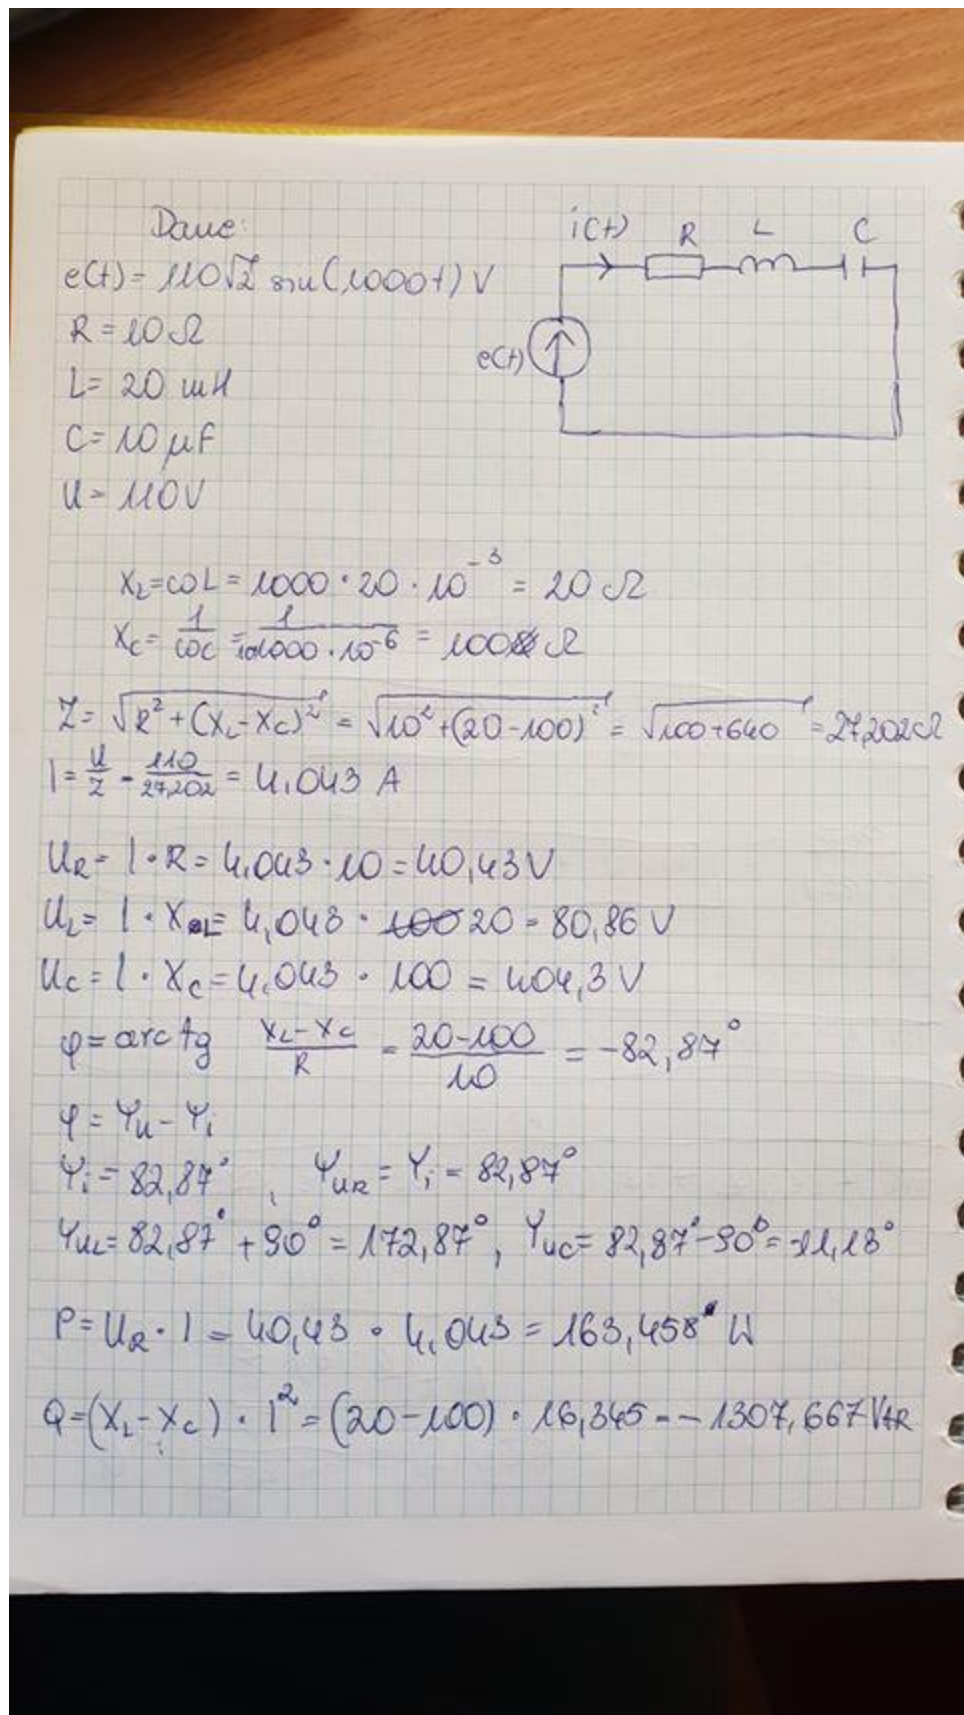 Dane:
e(t) = 110√2 sin(1000t) V
R = 10 Ω
L = 20 mH
C = 10 μF
U = 110V
i(t) R L C
e(t)
X_L = ωL = 1000 · 20 · 10^-3 = 20 Ω
X_C = 1/ωC = 1/(10·1000 · 10^-6) = 100 Ω
Z = √(R² + (X_L - X_C)²) = √(10² + (20-100)²) = √(100+640) = 27,202 Ω
I = U/Z = 110/27,202 = 4,043 A
U_R = I · R = 4,043 · 10 = 40,43 V
U_L = I · X_L = 4,043 · 100 20 = 80,86 V
U_C = I · X_C = 4,043 · 100 = 404,3 V
φ = arc tg (X_L - X_C)/R = (20-100)/10 = -82,87°
φ = Ψ_u - Ψ_i
Ψ_i = 82,87°, Ψ_UR = Ψ_i = 82,87°
Ψ_UL = 82,87° + 90° = 172,87°, Ψ_UC = 82,87° - 90° = -11,13°
P = U_R · I = 40,43 · 4,043 = 163,458 W
Q = (X_L - X_C) · I² = (20-100) · 16,345 = -1307,667 VAR